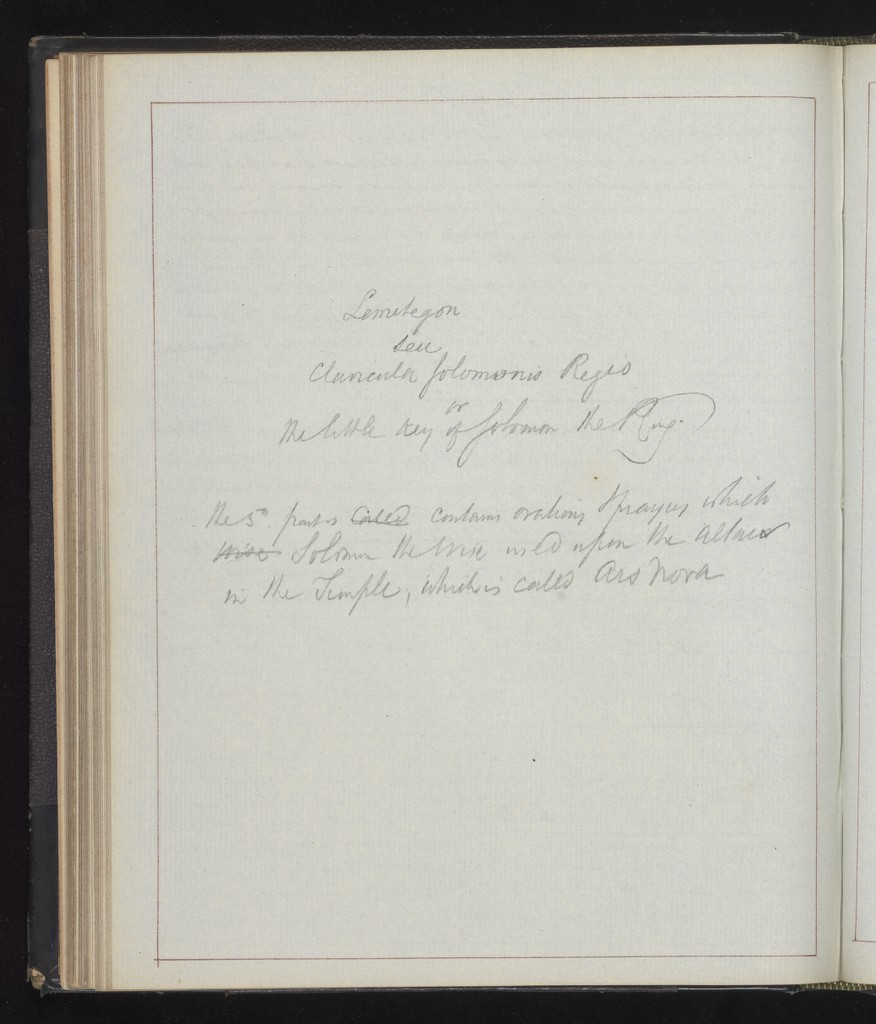 Lemetegon
seu
Clavicula Solomonis Regis
or
the little key of Solomon the King.
the 5th part is called contains orations & prayers which
wise Solomon the wise used upon the altar
in the Temple, which is called Ars Nova